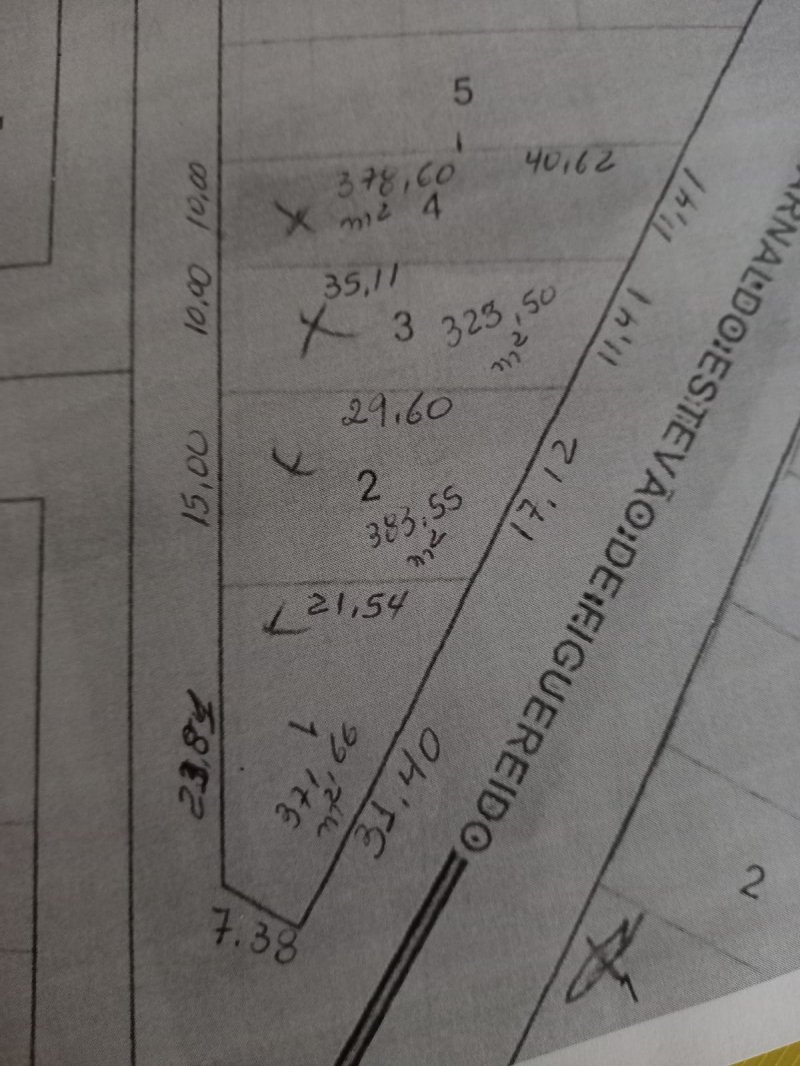 5
378,60
m² 4
40,62
10,00
11,41
35,11
3
323,50
m²
10,00
11,41
29,60
2
383,55
m²
15,00
17,12
21,54
1
371,66
m²
31,40
7.38
ARNALDO ESTEVÃO DE FIGUEREIDO
2
1